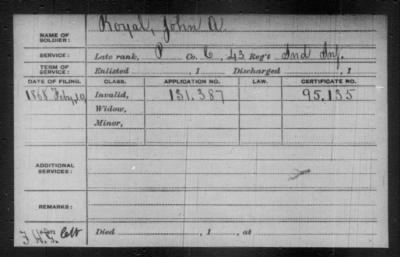 NAME OF SOLDIER: Royal, John A.
SERVICE: Late rank, P Co. C, 43 Reg't Ind Inf.
TERM OF SERVICE: Enlisted 1 Discharged , 1
DATE OF FILING. CLASS. APPLICATION NO. LAW. CERTIFICATE NO.
1868 Feby, 10 Invalid, 131.387 95.135
Widow,
Minor,
ADDITIONAL SERVICES:
REMARKS:
Died , 1 , at